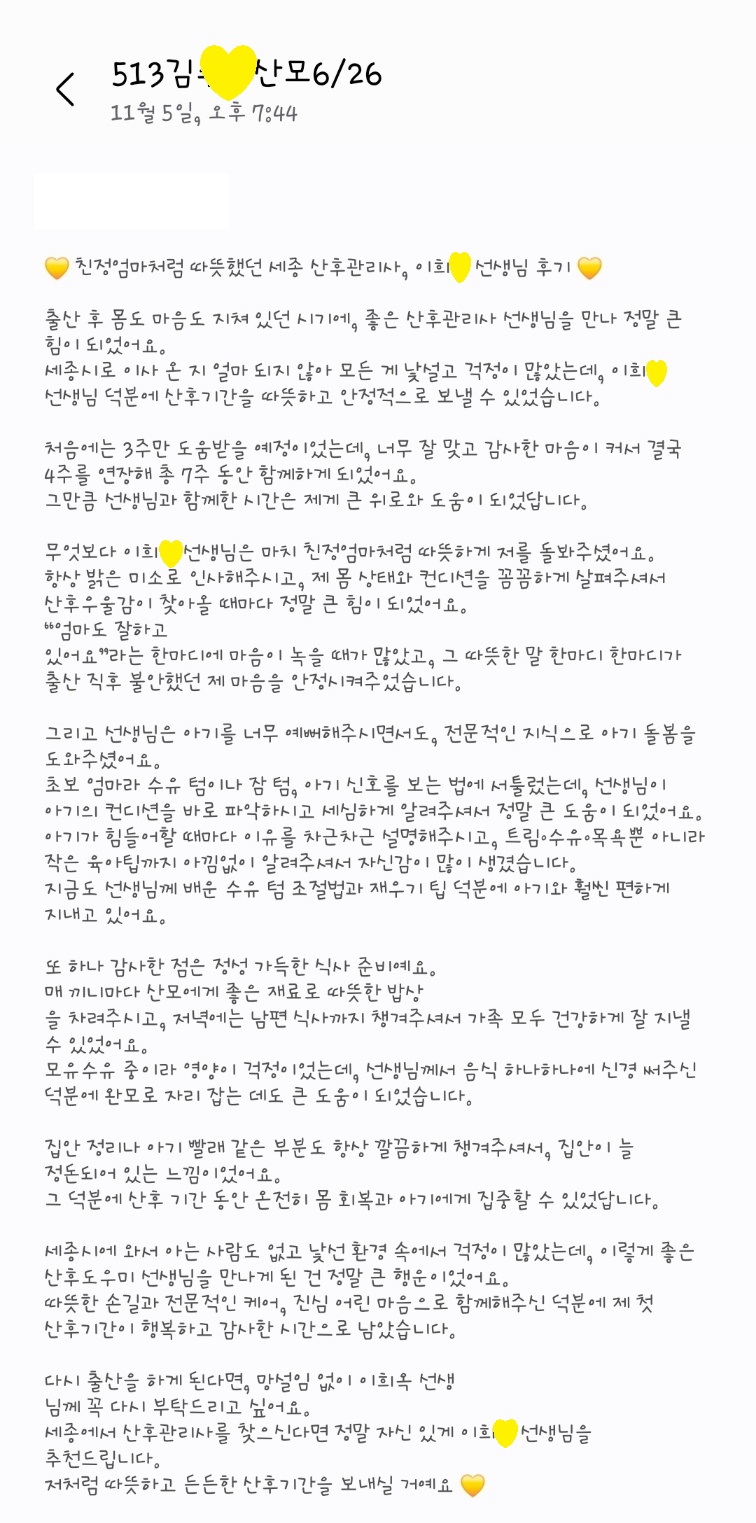 513김 산모6/26
11월 5일, 오후 7:44
💛 친정엄마처럼 따뜻했던 세종 산후관리사, 이희💛선생님 후기💛
출산 후 몸도 마음도 지쳐 있던 시기에, 좋은 산후관리사 선생님을 만나 정말 큰
힘이 되었어요.
세종시로 이사 온 지 얼마 되지 않아 모든 게 낯설고 걱정이 많았는데, 이희💛
선생님 덕분에 산후기간을 따뜻하고 안정적으로 보낼 수 있었습니다.
처음에는 3주만 도움받을 예정이었는데, 너무 잘 맞고 감사한 마음이 커서 결국
4주를 연장해 총 7주 동안 함께하게 되었어요.
그만큼 선생님과 함께한 시간은 제게 큰 위로와 도움이 되었답니다.
무엇보다 이희💛선생님은 마치 친정엄마처럼 따뜻하게 저를 돌봐주셨어요.
항상 밝은 미소로 인사해주시고, 제 몸 상태와 컨디션을 꼼꼼하게 살펴주셔서
산후우울감이 찾아올 때마다 정말 큰 힘이 되었어요.
“엄마도 잘하고
있어요”라는 한마디에 마음이 녹을 때가 많았고, 그 따뜻한 말 한마디 한마디가
출산 직후 불안했던 제 마음을 안정시켜주었습니다.
그리고 선생님은 아기를 너무 예뻐해주시면서도, 전문적인 지식으로 아기 돌봄을
도와주셨어요.
초보 엄마라 수유 텀이나 잠 텀, 아기 신호를 보는 법에 서툴렀는데, 선생님이
아기의 컨디션을 바로 파악하시고 세심하게 알려주셔서 정말 큰 도움이 되었어요.
아기가 힘들어할 때마다 이유를 차근차근 설명해주시고, 트림·수유·목욕뿐 아니라
작은 육아팁까지 아낌없이 알려주셔서 자신감이 많이 생겼습니다.
지금도 선생님께 배운 수유 텀 조절법과 재우기 팁 덕분에 아기와 훨씬 편하게
지내고 있어요.
또 하나 감사한 점은 정성 가득한 식사 준비예요.
매 끼니마다 산모에게 좋은 재료로 따뜻한 밥상
을 차려주시고, 저녁에는 남편 식사까지 챙겨주셔서 가족 모두 건강하게 잘 지낼
수 있었어요.
모유수유 중이라 영양이 걱정이었는데, 선생님께서 음식 하나하나에 신경 써주신
덕분에 완모로 자리 잡는 데도 큰 도움이 되었습니다.
집안 정리나 아기 빨래 같은 부분도 항상 깔끔하게 챙겨주셔서, 집안이 늘
정돈되어 있는 느낌이었어요.
그 덕분에 산후 기간 동안 온전히 몸 회복과 아기에게 집중할 수 있었답니다.
세종시에 와서 아는 사람도 없고 낯선 환경 속에서 걱정이 많았는데, 이렇게 좋은
산후도우미 선생님을 만나게 된 건 정말 큰 행운이었어요.
따뜻한 손길과 전문적인 케어, 진심 어린 마음으로 함께해주신 덕분에 제 첫
산후기간이 행복하고 감사한 시간으로 남았습니다.
다시 출산을 하게 된다면, 망설임 없이 이희옥 선생
님께 꼭 다시 부탁드리고 싶어요.
세종에서 산후관리사를 찾으신다면 정말 자신 있게 이희💛선생님을
추천드립니다.
저처럼 따뜻하고 든든한 산후기간을 보내실 거예요 💛